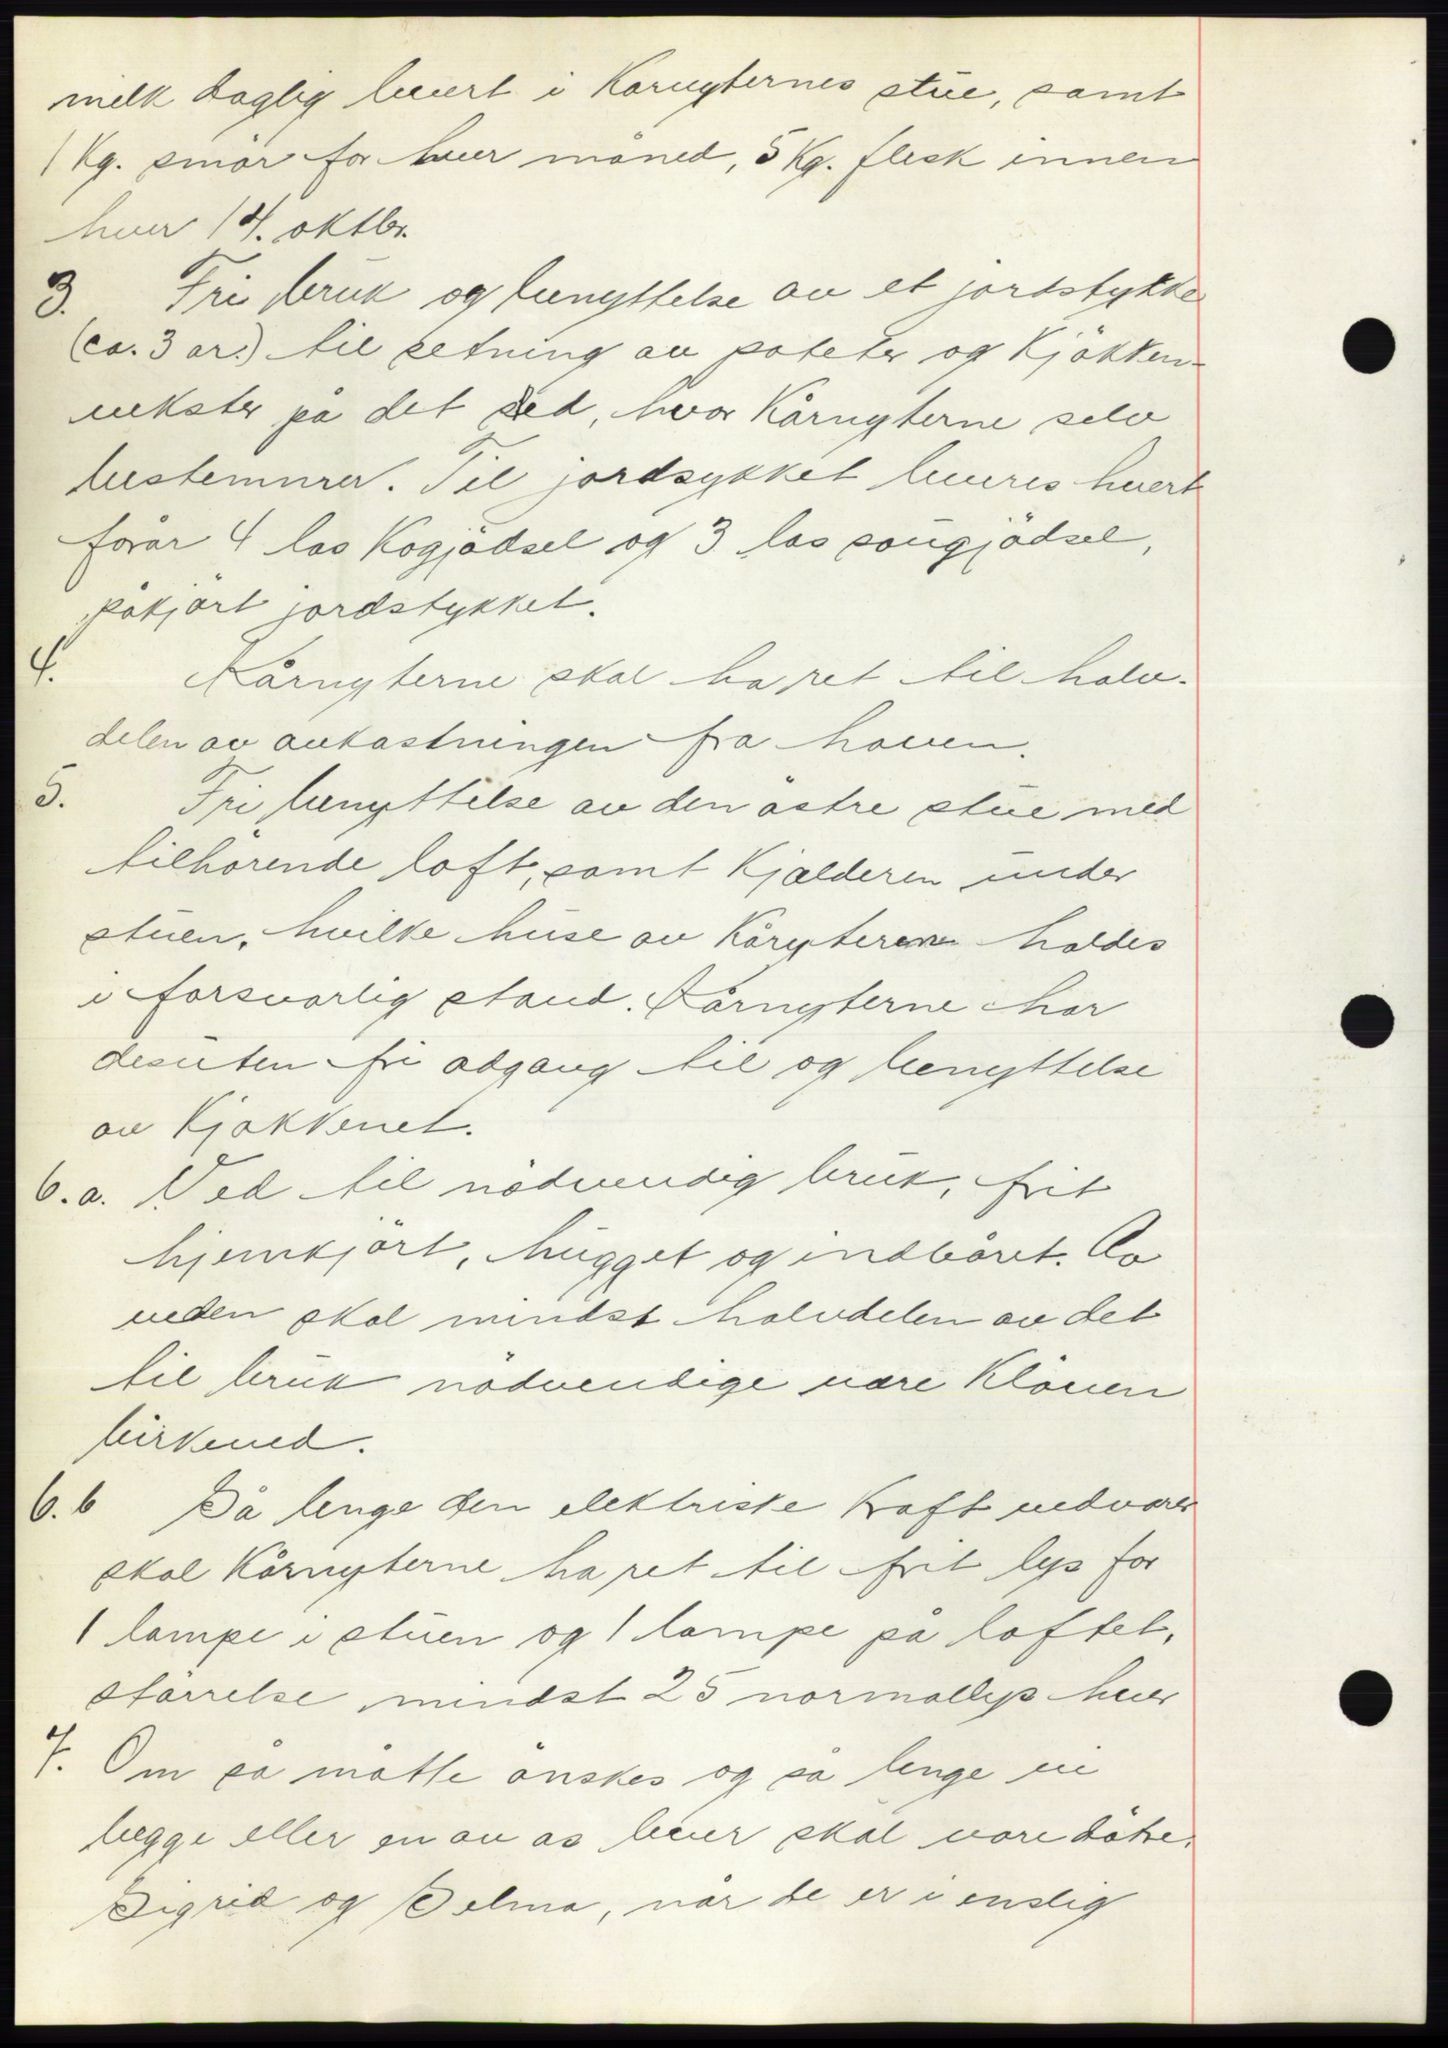 melk daglig levert i Kårnyternes stue, samt
1 Kg. smör for hver måned, 5 Kg. flesk innen
hver 14. oktbr.
3. Fri bruk og benyttelse av et jordstykke
(ca. 3 ar.) til setning av poteter og Kjökken-
vekster på det sted, hvor Kårnyterne selv
bestemmer. Til jordsykket leveres hvert
forår 4 las Kogjödsel og 3 las saugjödsel,
påkjört jordstykket.
4. Kårnyterne skal ha ret til halv-
delen av avkastningen fra haven.
5. Fri benyttelse av den östre stue med
tilhörende loft, samt Kjælderen under
stuen, hvilke huse av Kåryterne holdes
i forsvarlig stand. Kårnyterne har
desuten fri adgang til og benyttelse
av Kjökkenet.
6. a. Ved til nödvendig bruk, frit
hjemkjört, hugget og indbåret. Av
veden skal mindst halvdelen av det
til bruk nödvendige være Klöven
birkeved.
6. b Så lenge den elektriske Kraft vedvarer
skal Kårnyterne ha ret til frit lys for
1 lampe i stuen og 1 lampe på loftet,
störrelse mindst 25 normallys hver
7. Om så måtte önskes og så lenge vi
begge eller en av os lever skal vore dötre,
Sigrid og Selma, når de er i enslig